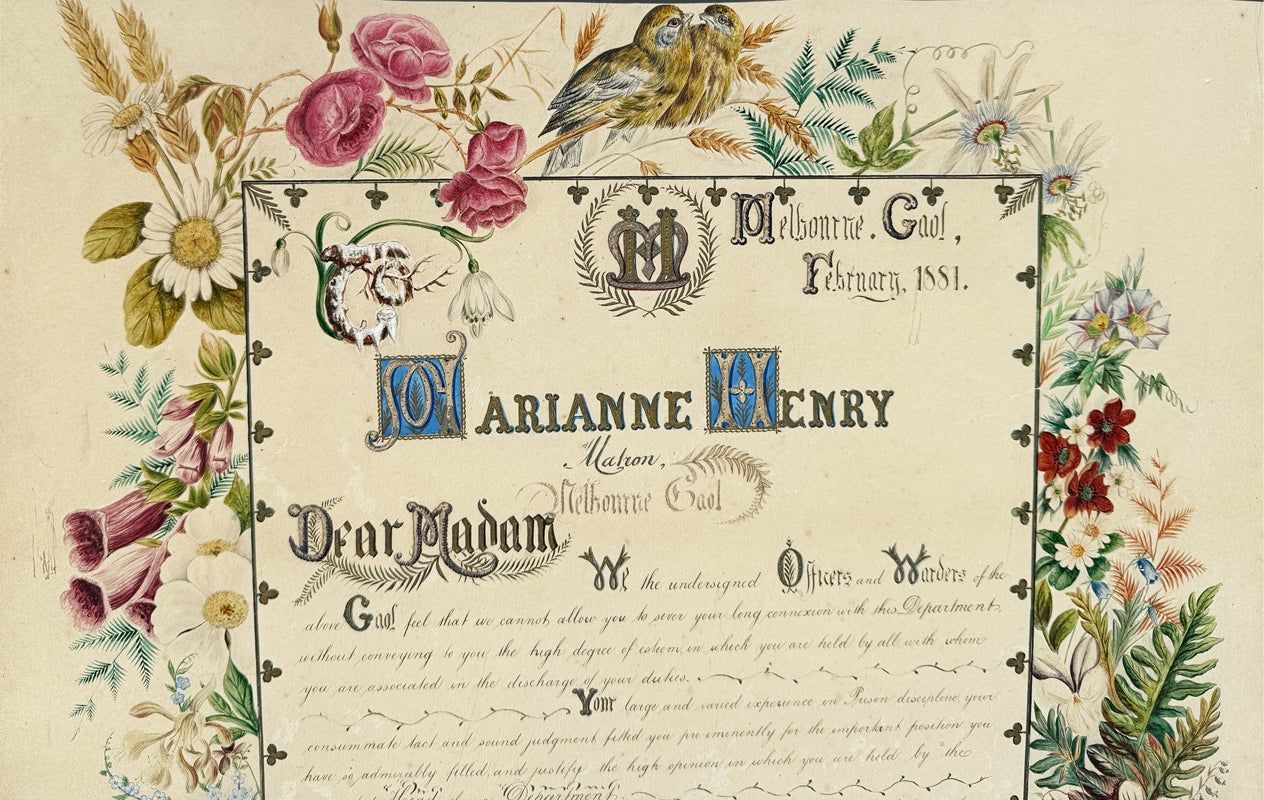 M
Melbourne. Gaol,
February, 1881.
To
MARIANNE HENRY
Matron,
Melbourne Gaol
Dear Madam
We the undersigned Officers and Warders of the
above Gaol feel that we cannot allow you to sever your long connexion with this Department,
without conveying to you the high degree of esteem, in which you are held by all with whom
you are associated in the discharge of your duties.
Your large and varied experience in Prison discipline, your
consummate tact and sound judgment fitted you pre eminently for the important position you
have so admirably filled, and justify the high opinion in which you are held by the
Head Department.